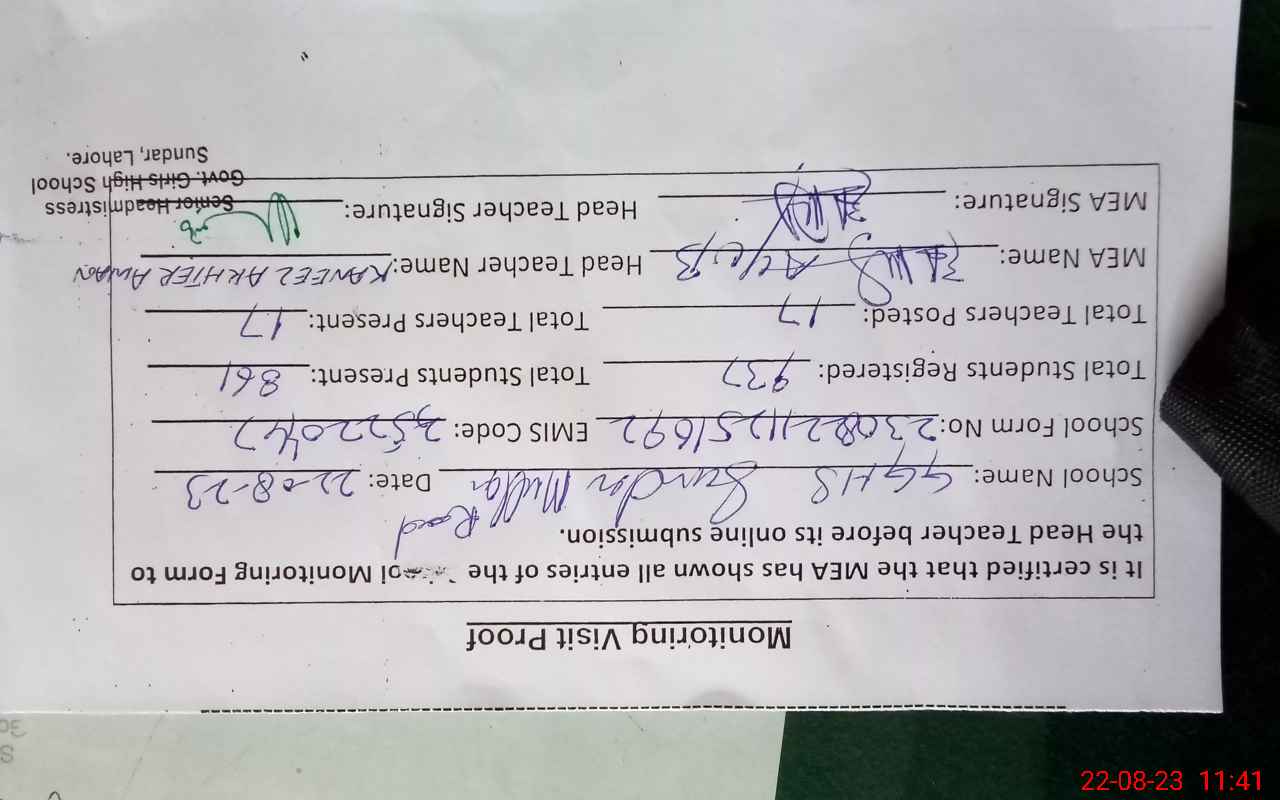 Monitoring Visit Proof
It is certified that the MEA has shown all entries of the Monitoring Form to
the Head Teacher before its online submission.
School Name: GGHS Sundar Multan Road Date: 22-08-23
School Form No: EMIS Code: 35220447
Total Students Registered: 937 Total Students Present: 861
Total Teachers Posted: 17 Total Teachers Present: 17
MEA Name: Head Teacher Name: KANEEZ AKHTER AWAN
MEA Signature: Head Teacher Signature:
Senior Headmistress
Govt. Girls High School
Sundar, Lahore.
22-08-23 11:41